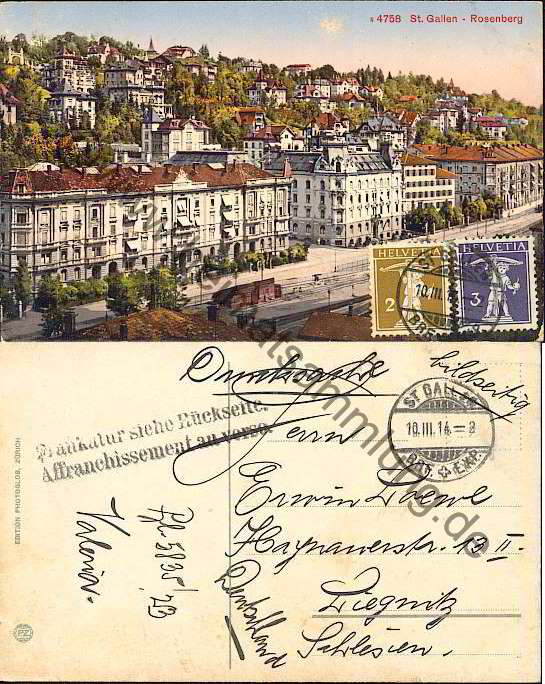 s 4758 St. Gallen - Rosenberg
HELVETIA
2
HELVETIA
3
10.III.
bildseitig
Frankatur siehe Rückseite.
Affranchissement au verso.
ST. GALLEN
10.III.14 – 2
BRF. EXP.
Herrn
Erwin Loewe
Haynauerstr. 13 II.
Liegnitz
Schlesien.
Deutschland
Valeria.
EDITION PHOTOGLOB, ZÜRICH
PZ